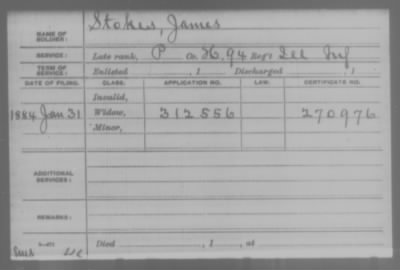 NAME OF SOLDIER: Stokes, James
SERVICE: Late rank, P Co. H, 94 Reg't Ill Inf
TERM OF SERVICE: Enlisted , 1 Discharged , 1
DATE OF FILING. CLASS. APPLICATION NO. LAW. CERTIFICATE NO.
Invalid,
1884 Jan 31 Widow, 312556 270976
Minor,
ADDITIONAL SERVICES:
REMARKS:
Died , 1 , at